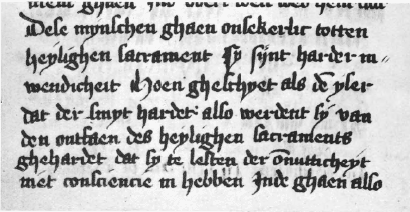 Dese mynschen ghaen onsekerlic totten
heylighen sacrament Sy sijnt harder in=
wendicheit Hoen gheschyet als de yser
dat der smyt hardet also werdent sy van
den ontfaen des heylighen sacraments
ghehardet dat sy te lesten der onnutticheyt
niet consciencie in hebben Inde ghaen also